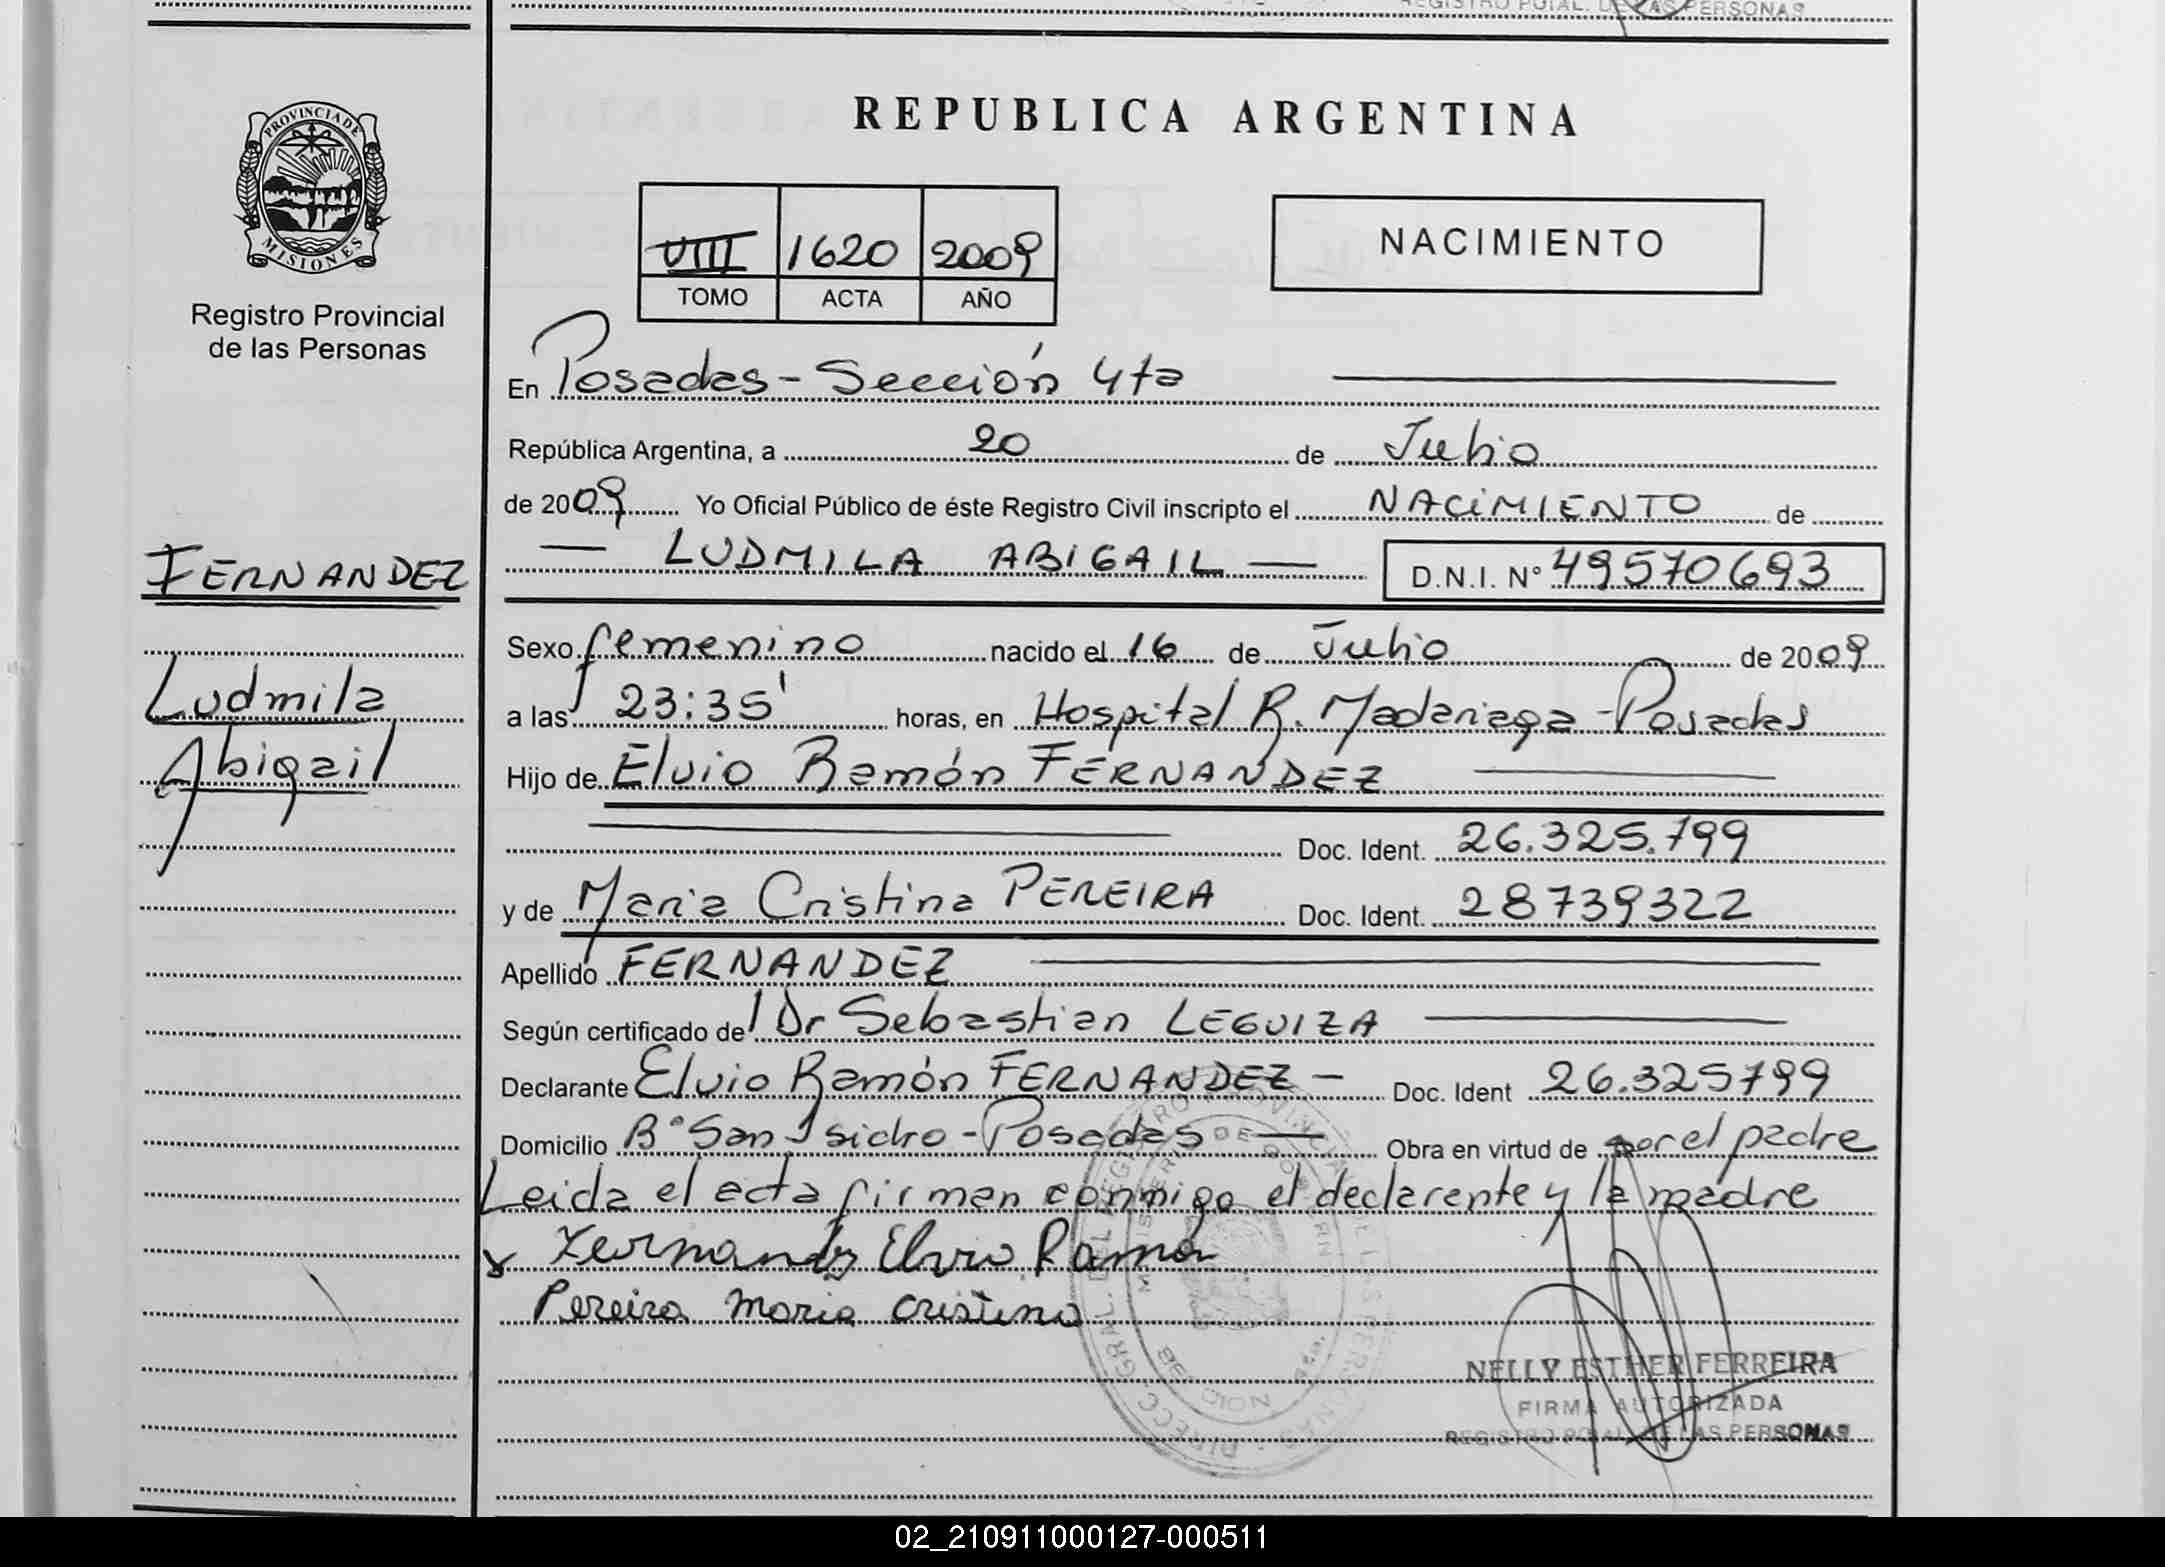 REGISTRO PCIAL. DE LAS PERSONAS
PROVINCIA DE
MISIONES
Registro Provincial
de las Personas
FERNANDEZ
Ludmila
Abigail
REPUBLICA ARGENTINA
VIII 1620 2009
TOMO ACTA AÑO
NACIMIENTO
En Posadas - Sección 4ta
República Argentina, a 20 de Julio
de 2009 Yo Oficial Público de éste Registro Civil inscripto el NACIMIENTO de
— LUDMILA ABIGAIL — D.N.I. N° 49570693
Sexo femenino nacido el 16 de Julio de 2009
a las 23:35' horas, en Hospital R. Madariaga - Posadas
Hijo de Elvio Ramón FERNANDEZ
Doc. Ident. 26.325.799
y de Maria Cristina PEREIRA Doc. Ident. 28739322
Apellido FERNANDEZ
Según certificado del Dr Sebastian LEGUIZA
Declarante Elvio Ramón FERNANDEZ - Doc. Ident 26.325799
Domicilio B° San Isidro - Posadas — Obra en virtud de por el padre
Leida el acta firman conmigo el declarante y la madre
x Fernandez Elvio Ramon
Pereira Maria Cristina
NELLY ESTHER FERREIRA
FIRMA AUTORIZADA
REGISTRO PCIAL. DE LAS PERSONAS
02_210911000127-000511